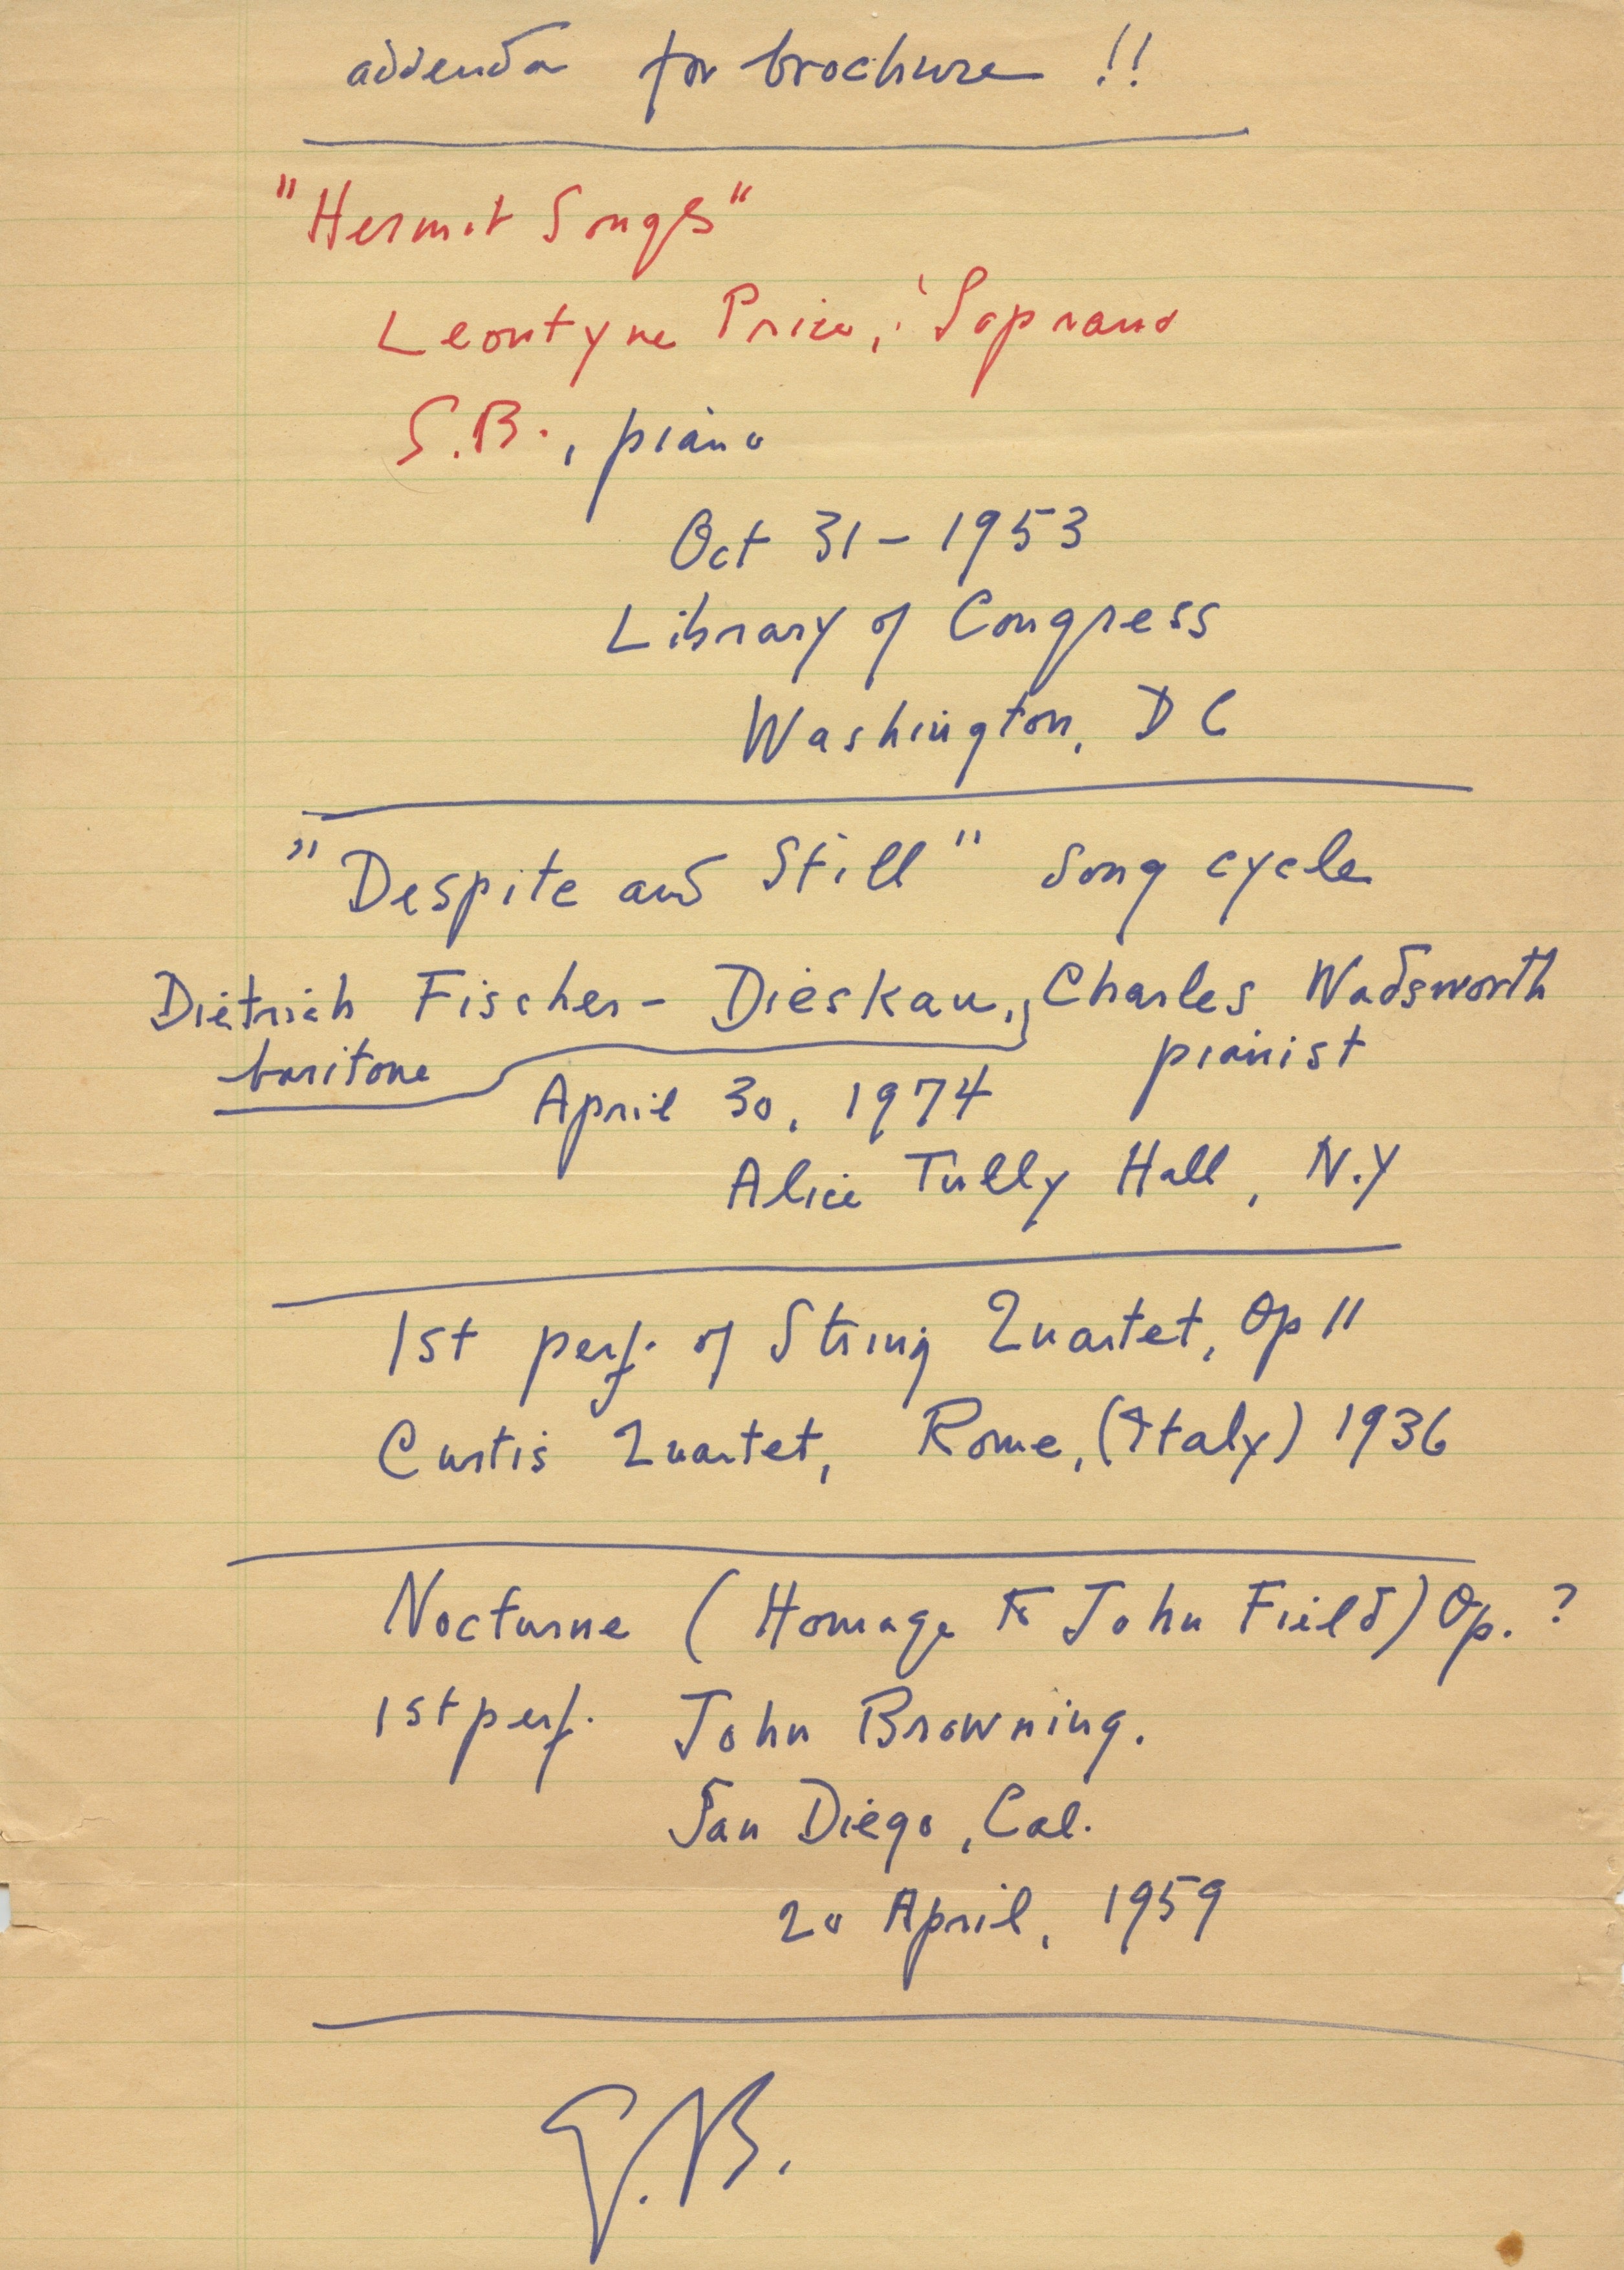 addenda for brochure !!
"Hermit Songs"
Leontyne Price, Soprano
S.B., piano
Oct 31 - 1953
Library of Congress
Washington, D C
"Despite and Still" Song cycle
Dietrich Fischer-Dieskau, Charles Wadsworth
baritone pianist
April 30, 1974
Alice Tully Hall, N.Y
1st perf. of String Quartet, Op 11
Curtis Quartet, Rome, (Italy) 1936
Nocturne (Homage to John Field) Op. ?
1st perf. John Browning.
San Diego, Cal.
20 April, 1959
S.B.